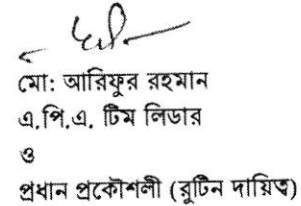 মো: আরিফুর রহমান
এ.পি.এ. টিম লিডার
ও
প্রধান প্রকৌশলী (রুটিন দায়িত্ব)